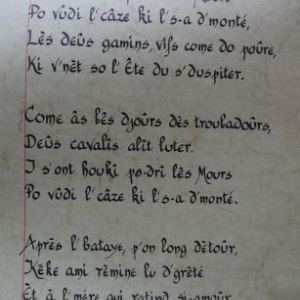 Po vûdî l'câze ki l's-a d'monté,
Lès deûs gamins, vifs come do poûre,
Ki v'nèt so l'Ête du s'duspiter.
Come ås bês djoûrs dès troubadoûrs,
Deûs cavalîs alît luter.
I s'ont houkî po-drî lès Mours
Po vûdî l'câze ki l's-a d'monté.
Après l'bataye, p'on long dètoûr,
Kéke ami rèmine lu d'grèté
Èt à l'mére qui ratind si-amoûr